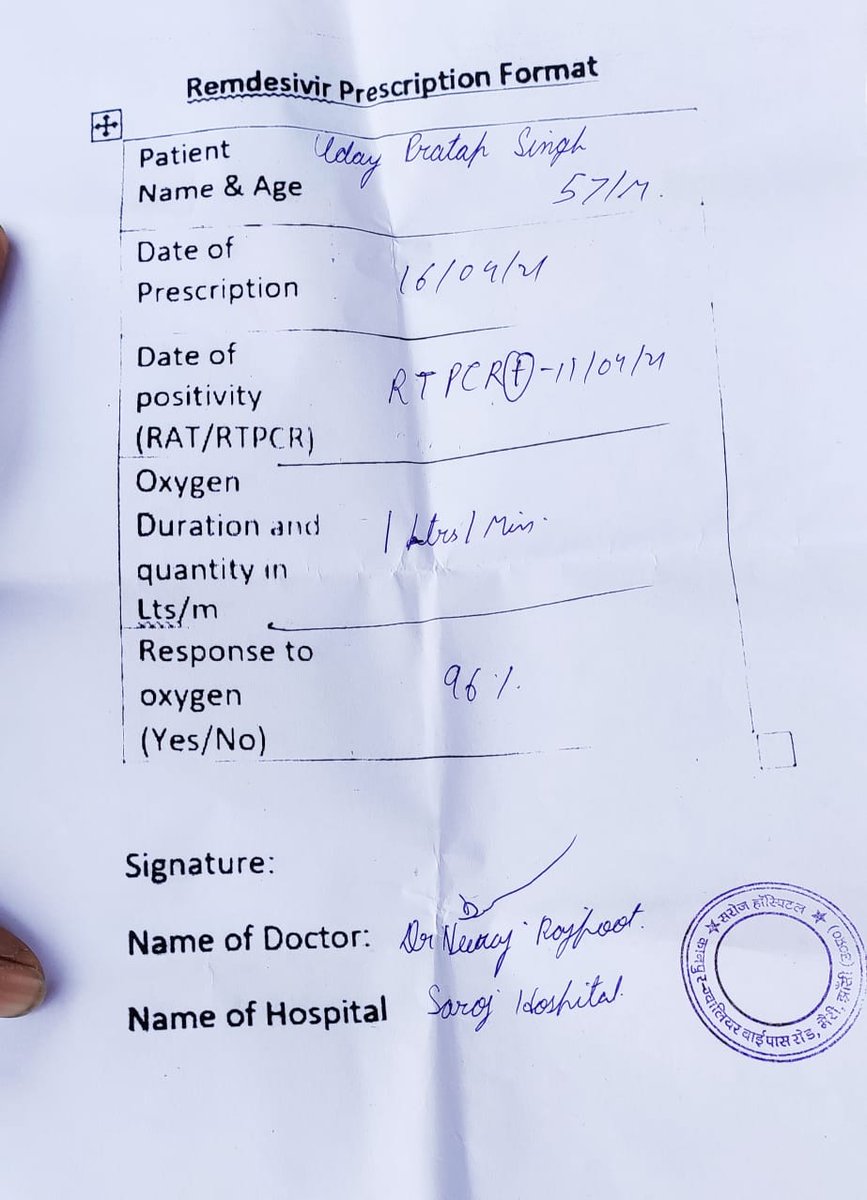 Remdesivir Prescription Format
Patient Uday Pratap Singh
Name & Age 57/M.
Date of
Prescription 16/04/21
Date of
positivity RTPCR(+) - 11/04/21
(RAT/RTPCR)
Oxygen
Duration and 1 Ltrs/Min.
quantity in
Lts/m
Response to
oxygen 96%.
(Yes/No)
Signature:
Name of Doctor: Dr Neeraj Rajpoot.
Name of Hospital Saroj Hospital.
सरोज हॉस्पिटल
कानपुर-ग्वालियर बाईपास रोड, भैरी, झाँसी (उ०प्र०)